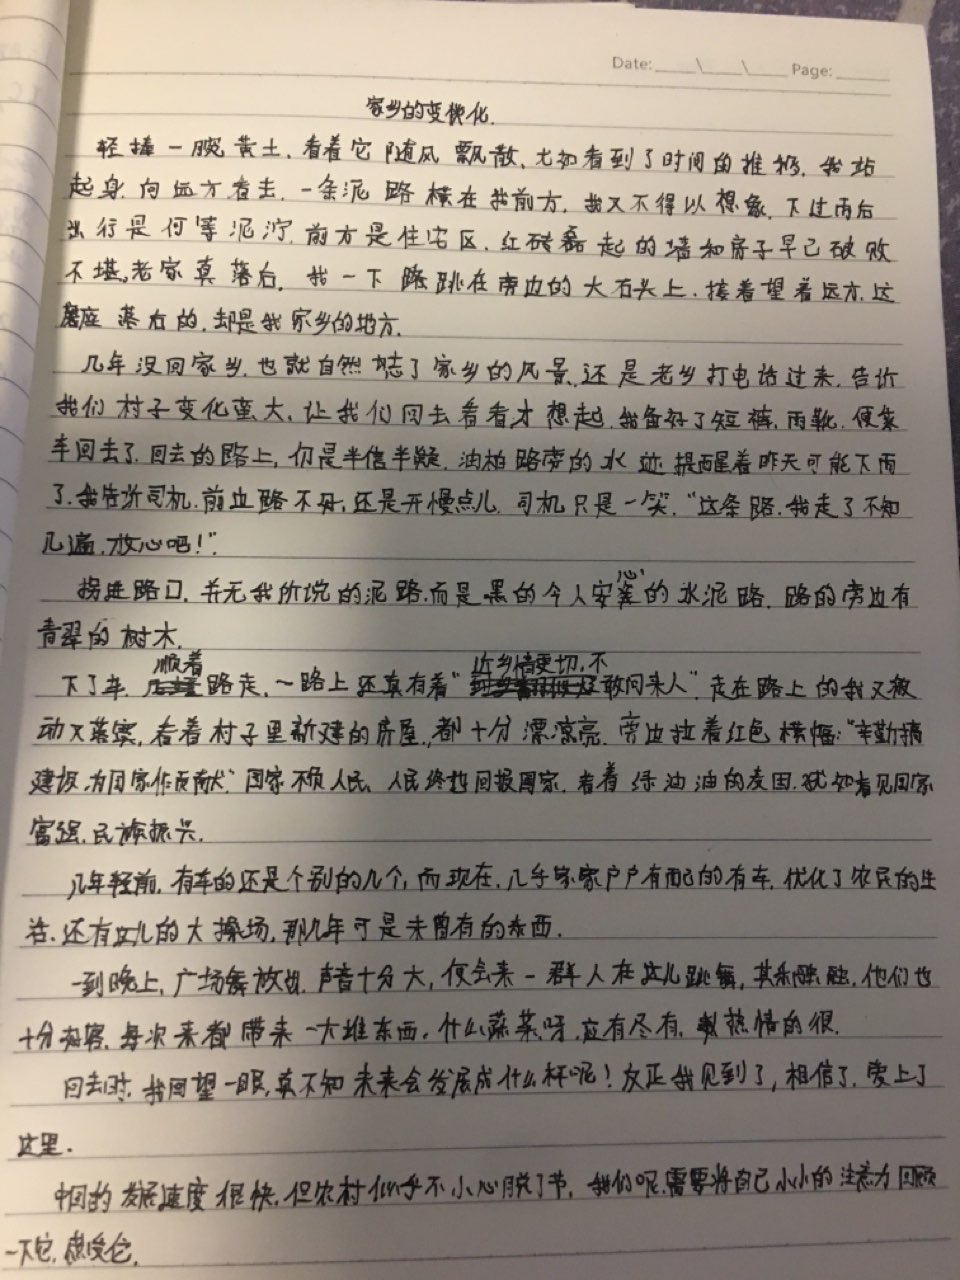 Date: ___\___\___ Page: ______
家乡的变化.
轻捧一碗黄土,看着它随风飘散,尤如看到了时间的推移,我站
起身,向远方看去,一条泥路横在我前方,我又不得以想象,下过雨后
出行是何等泥泞,前方是住宅区,红砖磊起的墙和房子早已破败
不堪,老家真落后,我一下跳在旁边的大石头上,接着望着远方,这
座落后的,却是我家乡的地方.
几年没回家乡,也就自然忘了家乡的风景,还是老乡打电话过来,告诉
我们村子变化蛮大,让我们回去看看才想起,我备好了短裤,雨靴,便坐
车回去了,回去的路上,仍是半信半疑,油柏路旁的水迹提醒着昨天可能下雨
了,我告诉司机,前边路不好,还是开慢点儿,司机只是一笑,“这条路,我走了不知
几遍,放心吧!”.
拐进路口,并无我所说的泥路,而是黑的令人安心的水泥路,路的旁边有
青翠的树木.
下了车,顺着路走,一路上还真有着“近乡情更切,不敢问来人”,走在路上的我又激
动又落寞,看着村子里新建的房屋,都十分漂亮,旁边拉着红色横幅:“辛勤搞
建设,为国家作贡献”国家不负人民,人民终把回报国家,看着绿油油的麦田,犹如看见国家
富强,民族振兴.
几年前,有车的还是个别的几个,而现在,几乎家家户户有车,优化了农民的生
活,还有这儿的大操场,那几年可是未曾有的东西.
一到晚上,广场舞放起,声音十分大,便会来一群人在这儿跳舞,其乐融融,他们也
十分好客,每次来都带来一大堆东西,什么蔬菜呀,应有尽有,热情的很.
回去时,我回望一眼,真不知未来会发展成什么样呢!反正我见到了,相信了,爱上了
这里.
中国的发展速度很快,但农村似乎不小心脱了节,我们呢,需要将自己小小的注意力回顾
一下它,感受它.